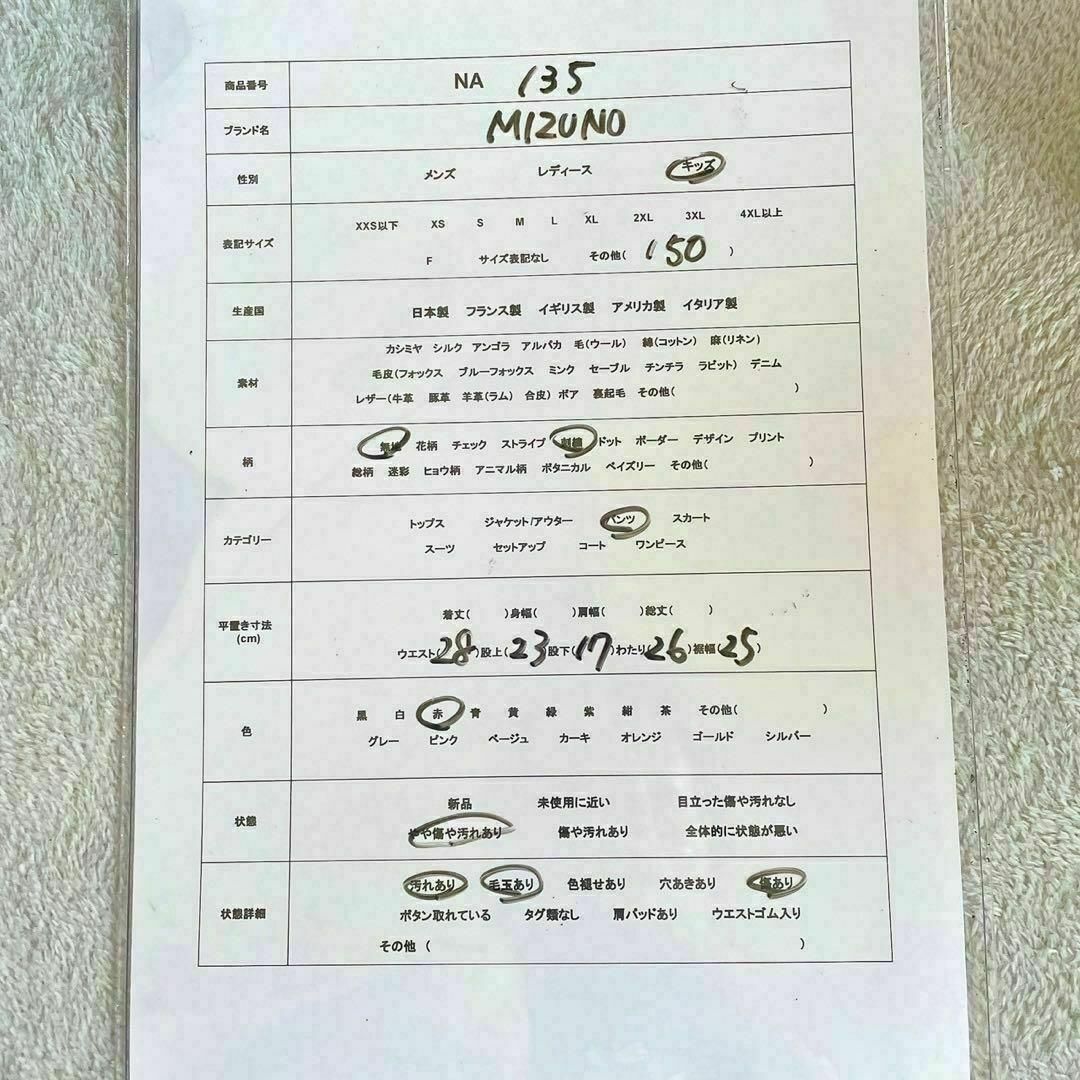 商品番号 NA 135
ブランド名 MIZUNO
性別 メンズ レディース キッズ
表記サイズ XXS以下 XS S M L XL 2XL 3XL 4XL以上
F サイズ表記なし その他( 150 )
生産国 日本製 フランス製 イギリス製 アメリカ製 イタリア製
素材 カシミヤ シルク アンゴラ アルパカ 毛(ウール) 綿(コットン) 麻(リネン)
毛皮(フォックス ブルーフォックス ミンク セーブル チンチラ ラビット) デニム
レザー(牛革 豚革 羊革(ラム) 合皮) ボア 裏起毛 その他( )
柄 無地 花柄 チェック ストライプ 刺繍 ドット ボーダー デザイン プリント
総柄 迷彩 ヒョウ柄 アニマル柄 ボタニカル ペイズリー その他( )
カテゴリー トップス ジャケット/アウター パンツ スカート
スーツ セットアップ コート ワンピース
平置き寸法
(cm)
着丈( )身幅( )肩幅( )総丈( )
ウエスト(28)股上(23)股下(17)わたり(26)裾幅(25)
色 黒 白 赤 青 黄 緑 紫 紺 茶 その他( )
グレー ピンク ベージュ カーキ オレンジ ゴールド シルバー
状態 新品 未使用に近い 目立った傷や汚れなし
やや傷や汚れあり 傷や汚れあり 全体的に状態が悪い
状態詳細 汚れあり 毛玉あり 色褪せあり 穴あきあり 傷あり
ボタン取れている タグ類なし 肩パッドあり ウエストゴム入り
その他 ( )